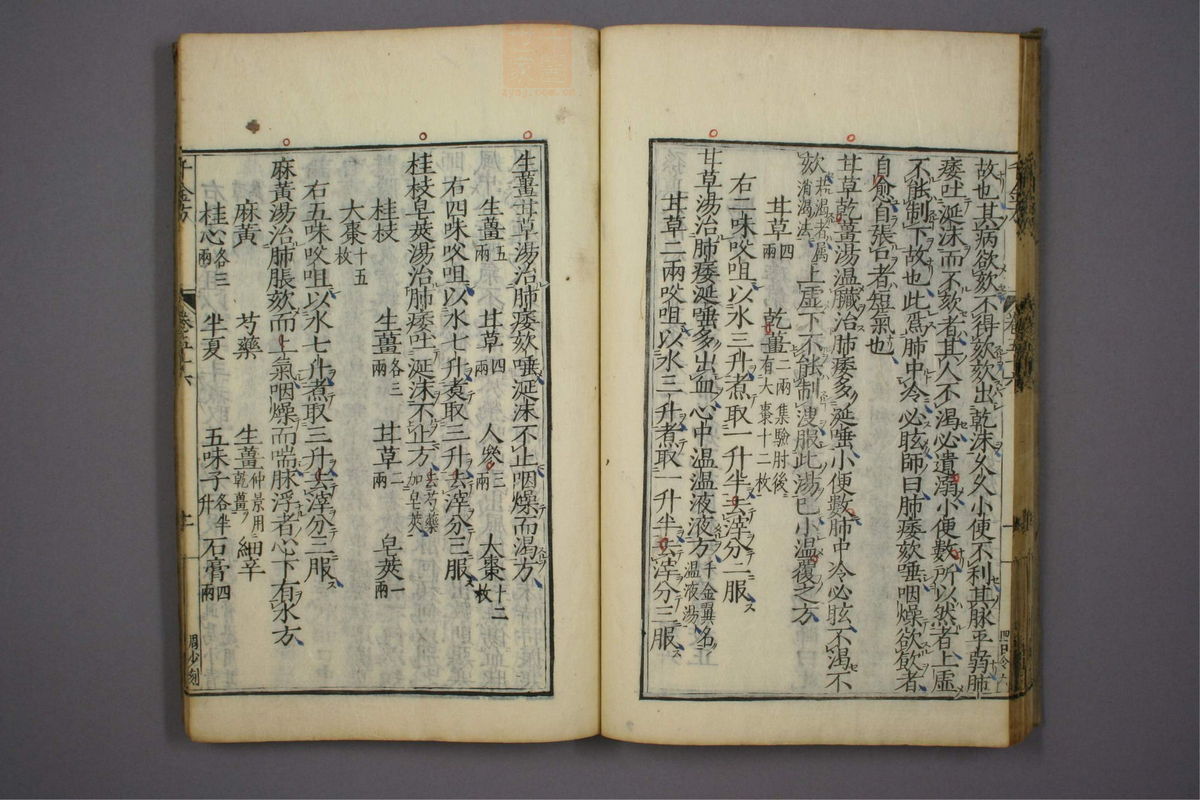 故也其病欲欬不得欬欬出乾沫久久小便不利其脉平弱肺
痿吐涎沫而不欬者其人不渴必遺溺小便數所以然者上虛
不能制下故也此爲肺中冷必眩師曰肺痿欬唾咽燥欲飲者
自愈自張口者短氣也
甘草乾薑湯温臟治肺痿多涎唾小便數肺中冷必眩不渴不
欬若渴者屬消渴法上虛下不能制溲服此湯已小温覆之方
甘草四兩 乾薑二兩集驗肘後有大棗十二枚
右二味㕮咀以水三升煮取一升半去滓分二服
甘草湯治肺痿涎唾多出血心中温温液液方千金翼名温液湯
甘草二兩㕮咀以水三升煮取一升半去滓分三服
生薑甘草湯治肺痿欬唾涎沫不止咽燥而渴方
生薑五兩 甘草四兩 人參三兩 大棗十二枚
右四味㕮咀以水七升煮取三升去滓分三服
桂枝皂莢湯治肺痿吐涎沫不止方去芍藥加皂莢
桂枝 生薑各三兩 甘草二兩 皂莢一兩
大棗十五枚
右五味㕮咀以水七升煮取三升去滓分三服
麻黃湯治肺脹欬而上氣咽燥而喘脉浮者心下有水方
麻黃 芍藥 生薑仲景用乾薑 細辛
桂心各三兩 半夏 五味子各半升 石膏四兩
千金方 卷五十六
周少刻